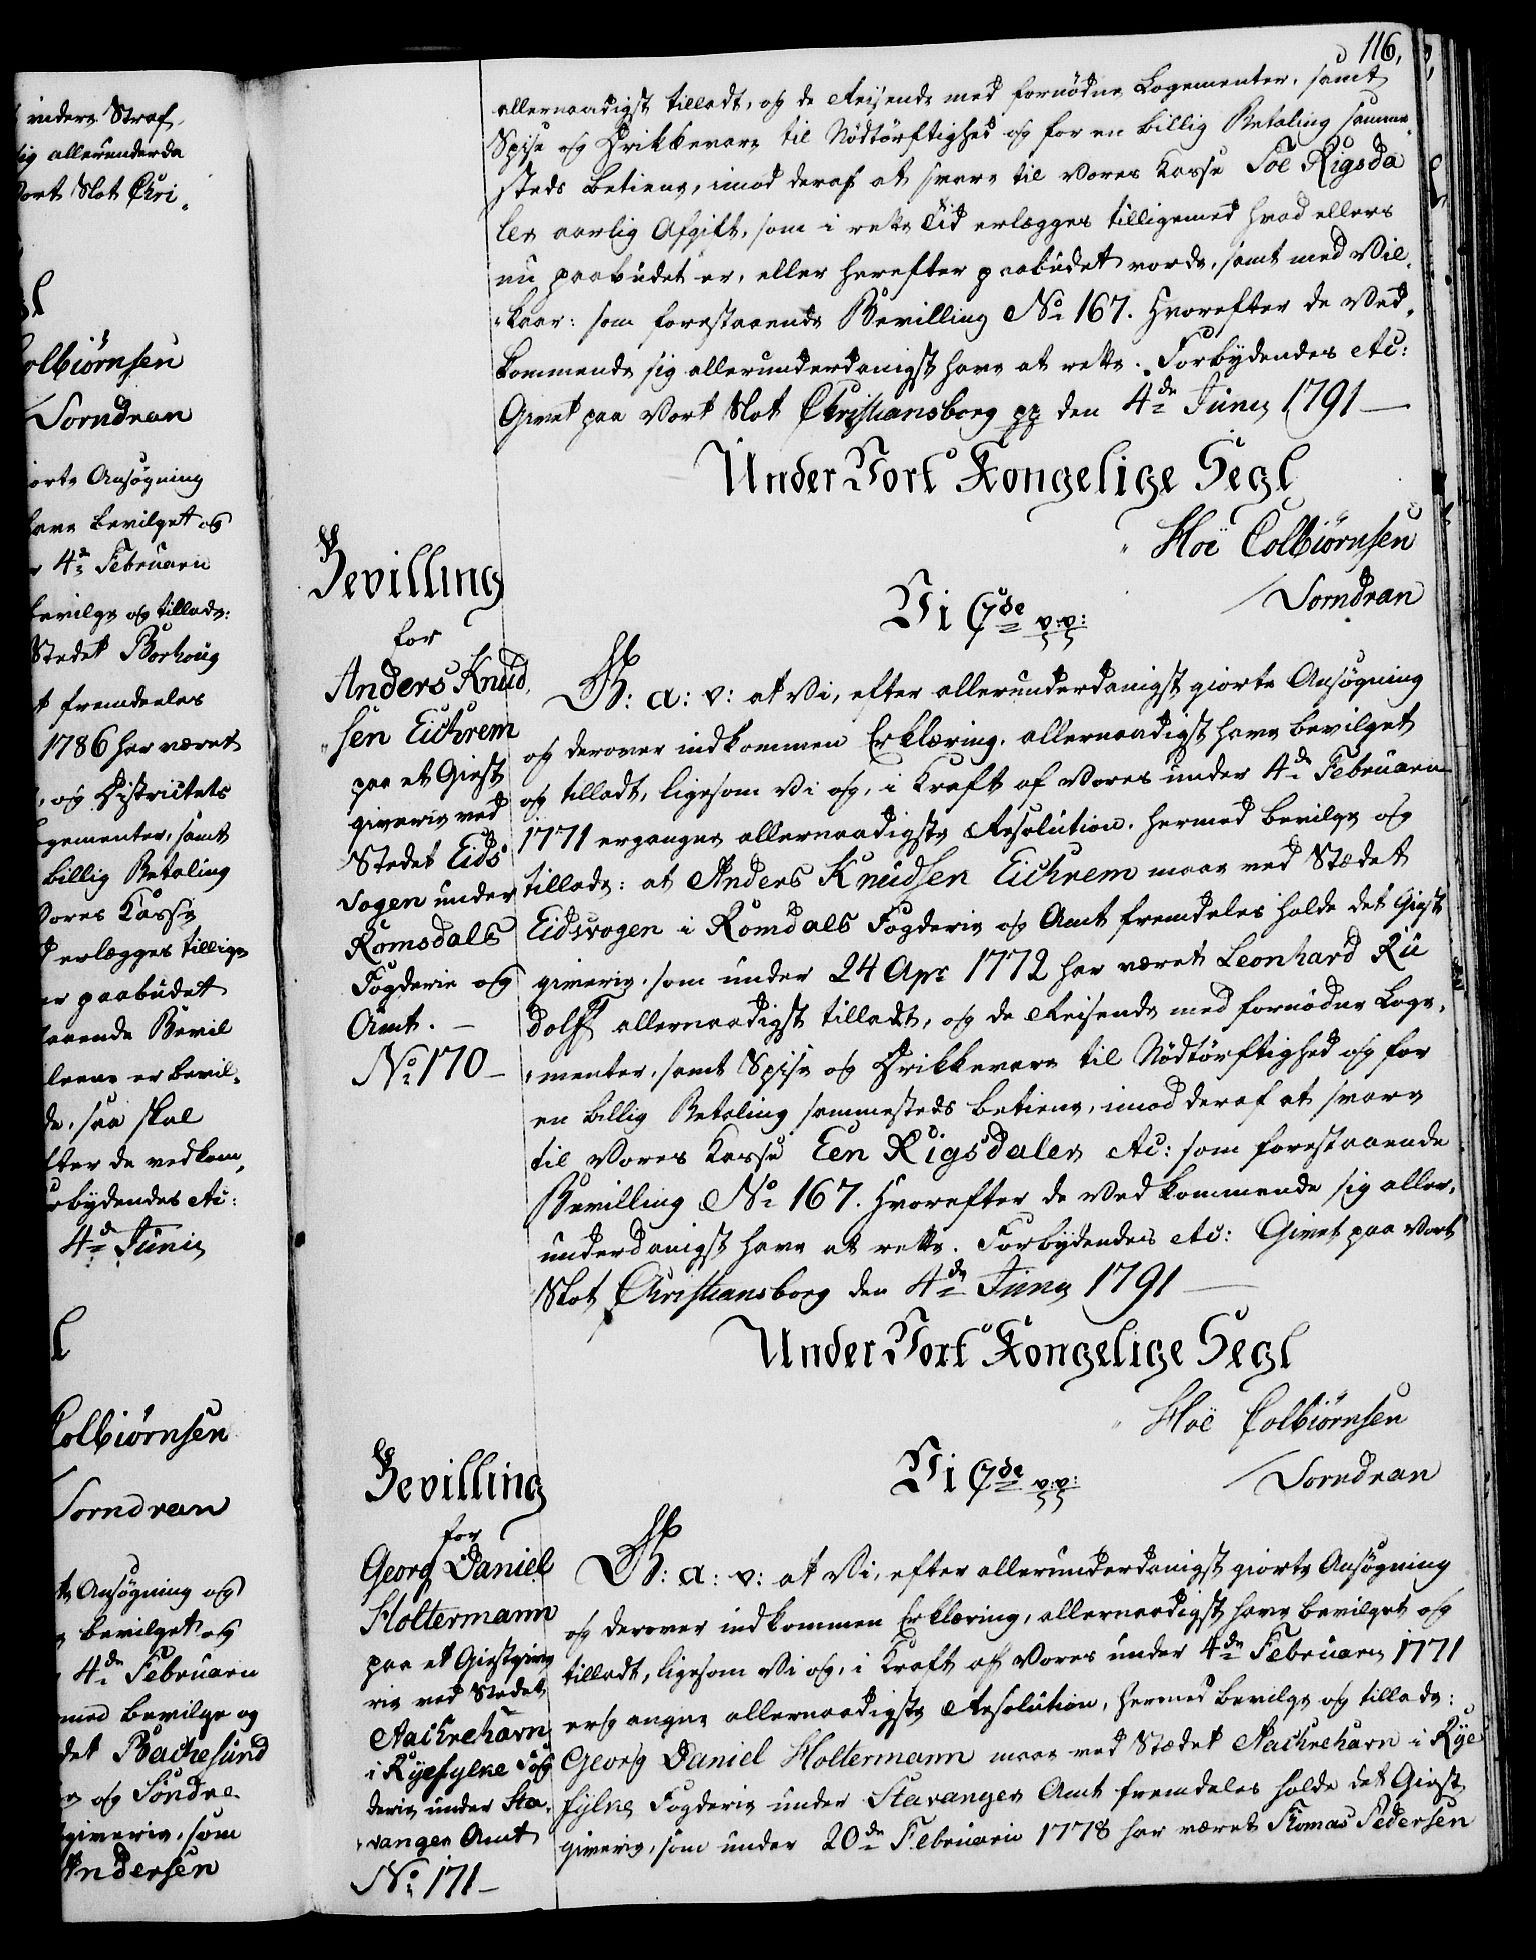 videre Straf
sig allerunderda
Vort Slot Chri„
Colbiørnsen
Dorndran
iorte Ansøgning
have bevilget og
4de Februarii
bevilge og tillade:
Stedet Borhoug
t fremdeeles
1786 har været
, og Districtets
gementer, samt
billig Betaling
Vores Kasse
d erlægges tillige
er paabudet
taaende Bevil
leene er bevil„
de, saa skal
fter de vedkom„
rbydendes etc:
4de Junii
Colbiørnsen
Dorndran
te Ansøgning og
e bevilget og
4de Februarii
med bevilge og
det Bachesund
e og Søndre
giverie, som
Andersen
116,
allernaadigst tilladt, og de Reisende med fornødne Logementer, samt
Spise og Drikkevare til Nødtørftighed og for en billig Betaling samme„
steds betiene, imod deraf at svare til Vores Kasse Toe Rigsda
ler aarlig Afgift, som i rette Tid erlægges tilligemed hvad ellers
nu paabudet er, eller herefter paabudet vorde, samt med Vil„
„kaar: som forestaaende Bevilling No 167. Hvorefter de Ved„
kommende sig allerunderdanigst have at rette. Forbydendes etc:
Givet paa Vort Slot Christiansborg pp den 4de Junii 1791 —
Under Vort Kongelige Segl
Hoë Colbiørnsen
Dorndran
Bevilling
for
Anders Knud„
„sen Eichrem
paa et Giest
giverie ved
Stedet Eids
vogen under
Romsdals
Fogderie og
Amt. —
No 170 —
Vi C7de v:v:
G: a: v: at Vi, efter allerunderdanigst giorte Ansøgning
og derover indkommen Erklæring, allernaadigst have bevilget
og tilladt, ligesom Vi og, i Kraft af Vores under 4de Februarii
1771 ergangne allernaadigste Resolution, hermed bevilge og
tillade: at Anders Knudsen Eichrem maae ved Stædet
Eidsvogen i Romdals Fogderie og Amt fremdeles holde det Giest
giverie, som under 24 Apr 1772 har været Leonhard Ru
dolf allernaadigst tilladt, og de Reisende med fornødne Loge„
„menter, samt Spise og Drikkevare til Nødtørftighed og for
en billig Betaling sammesteds betiene, imod deraf at svare
til Vores Kasse Een Rigsdaler etc: som forestaaende
Bevilling No 167. Hvorefter de Vedkommende sig aller„
underdanigst have at rette. Forbydendes etc: Givet paa Vort
Slot Christiansborg den 4de Junii 1791 —
Under Vort Kongelige Segl
Hoë Colbiørnsen
Dorndran
Bevilling
for
Georg Daniel
Holtermann
paa et Giestgive
rie ved Stedet
Aachrehavn
i Ryefylke Fog
derie under Sta„
„vanger Amt
No 171 —
Vi C7de v:v:
G: a: v: at Vi, efter allerunderdanigst giorte Ansøgning
og derover indkommen Erklæring, allernaadigst have bevilget og
tilladt, ligesom Vi og, i Kraft af Vores under 4de Februarii 1771
ergangne allernaadigste Resolution, hermed bevilge og tillade:
Georg Daniel Holtermann maae ved Stædet Aachrehavn i Rye
fylke Fogderie under Stavanger Amt fremdeles holde det Giest
giverie, som under 20de Februarii 1778 har været Thomas Pedersen